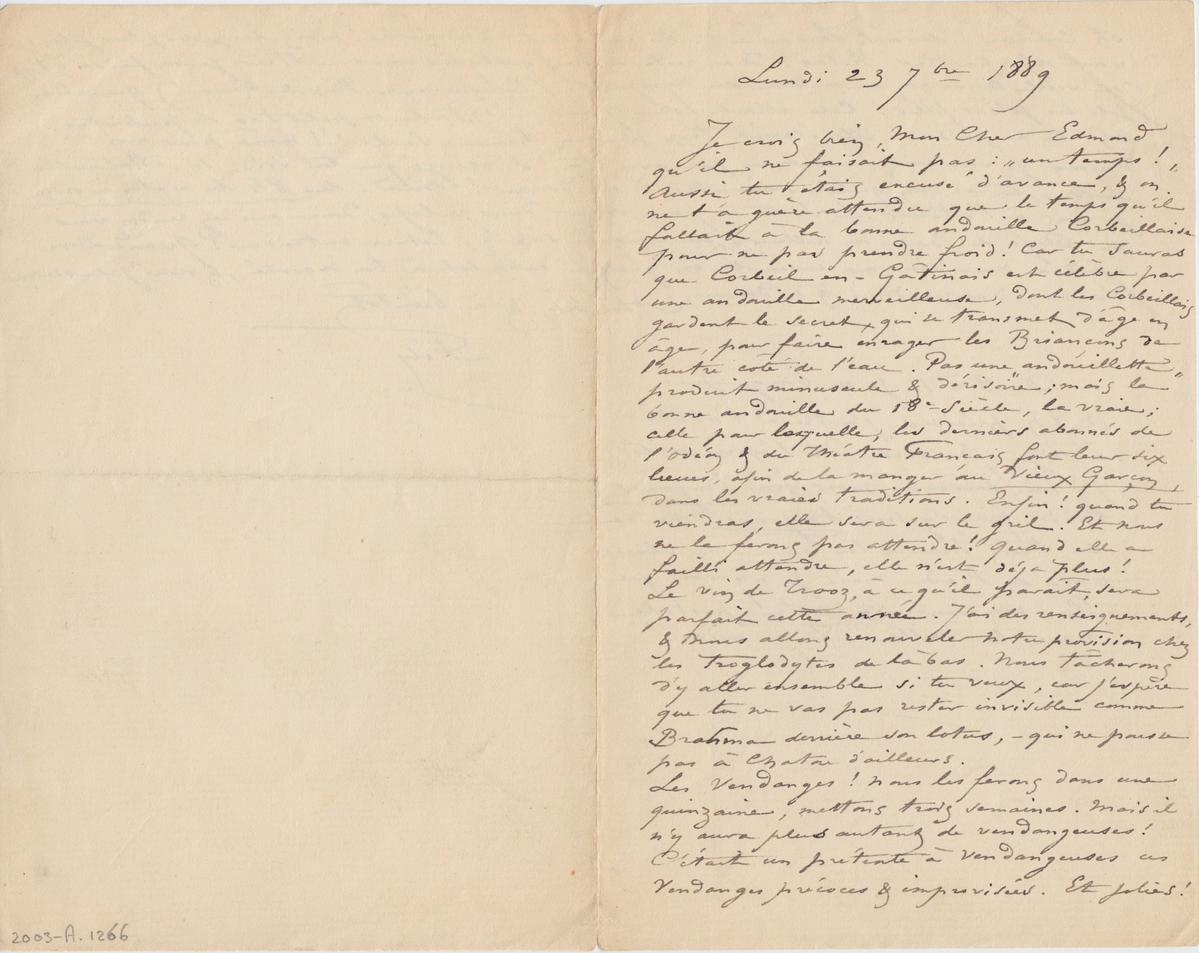 Lundi 23 7bre 1889
Je crois bien, Mon Cher Edmond
qu'il ne faisait pas : „un temps !„
Aussi tu étais excusé d'avance, & on
ne t'a guère attendu que le temps qu'il
fallait à la bonne andouille Corbeillaise
pour ne pas prendre froid ! Car tu sauras
que Corbeil-en-Gatinais est célèbre par
une andouille merveilleuse, dont les Corbeillais
gardent le secret, qui se transmet d'âge en
âge, pour faire enrager les Briançons de
l'autre coté de l'eau. Pas une „andouillette„
produit minuscule & dérisoire ; mais la
bonne andouille du 18e Siècle, la vraie ;
celle pour laquelle, les derniers abonnés de
l'Odéon & du Théâtre Français font leur six
lieues, afin de la manger au Vieux Garçon,
dans les vraies traditions. Enfin ! quand tu
viendras, elle sera sur le gril. Et nous
ne la ferons pas attendre ! Quand elle a
failli attendre, elle n'est déja plus !
Le vin de Trooz, à ce qu'il parait, sera
parfait cette année. J'ai des renseignements,
& nous allons renouveler notre provision chez
les Troglodytes de là-bas. Nous tâcherons
d'y aller ensemble si tu veux, car j'espère
que tu ne vas pas rester invisible comme
Brahma derrière son lotus, – qui ne pousse
pas à Chatou d'ailleurs.
Les Vendanges ! nous les ferons dans une
quinzaine, mettons trois semaines. Mais il
n'y aura plus autant de vendangeuses !
C'était un prétexte à Vendangeuses ces
Vendanges précoces & improvisées. Et jolies !
2003-A.1266